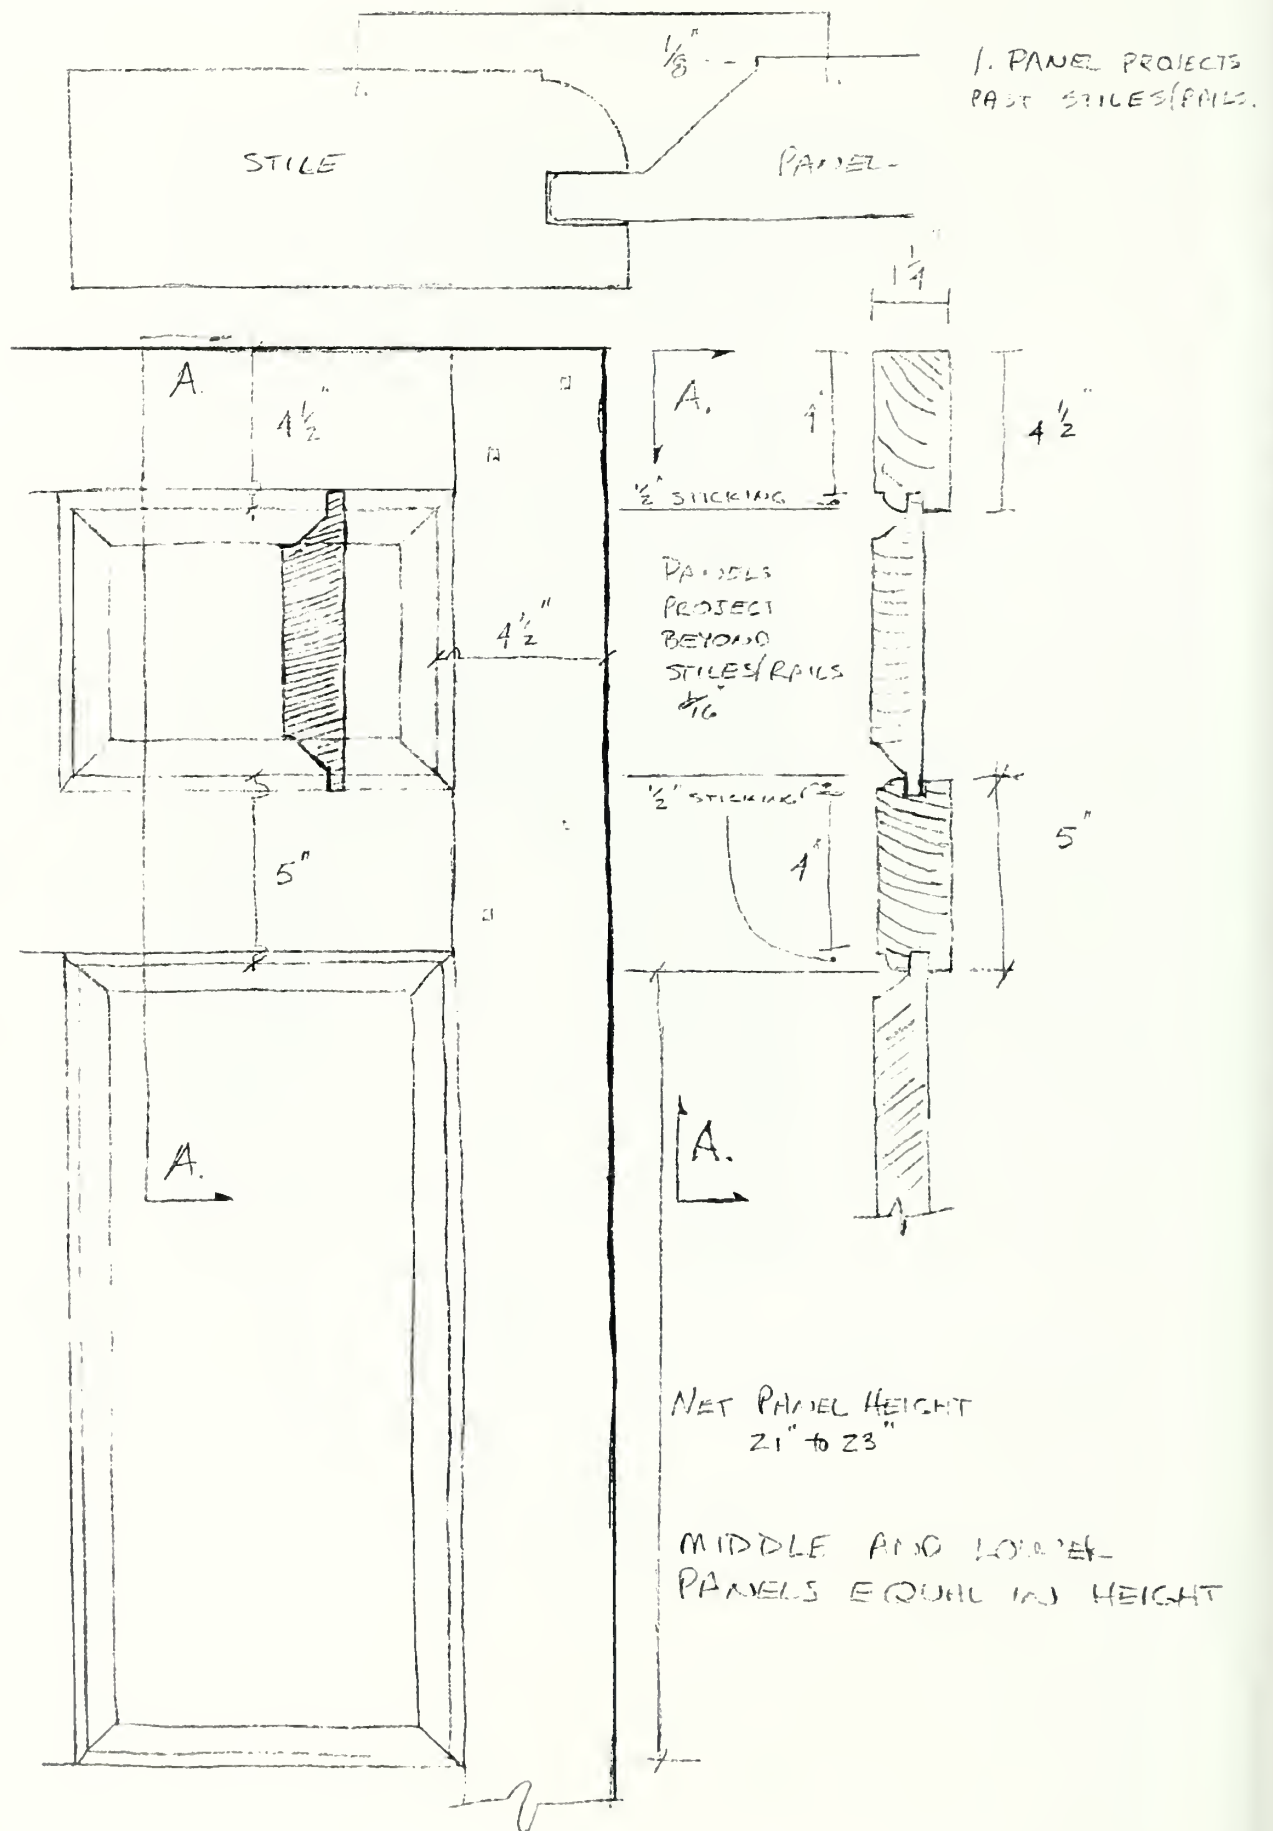 1/8"
1. PANEL PROJECTS
PAST STILES/RAILS.
STILE
PANEL
1 1/4"
A.
4 1/2"
A.
4"
4 1/2"
1/2" STICKING
PANELS
PROJECT
BEYOND
STILES/RAILS
1/16"
4 1/2"
1/2" STICKING
5"
4"
5"
A.
A.
NET PANEL HEIGHT
21" to 23"
MIDDLE AND LOWER
PANELS EQUAL IN HEIGHT